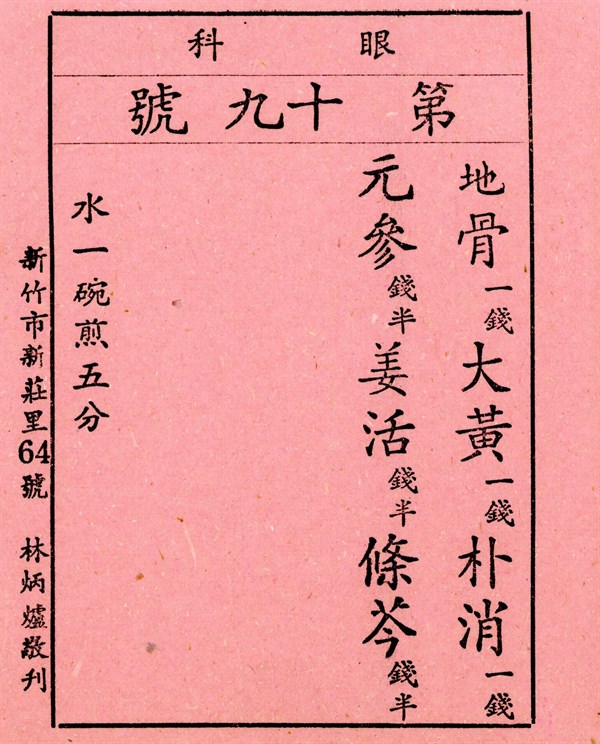 眼科
第十九號
地骨一錢大黃一錢朴消一錢
元參錢半姜活錢半條芩錢半
水一碗煎五分
新竹市新莊里64號 林炳爐敬刊